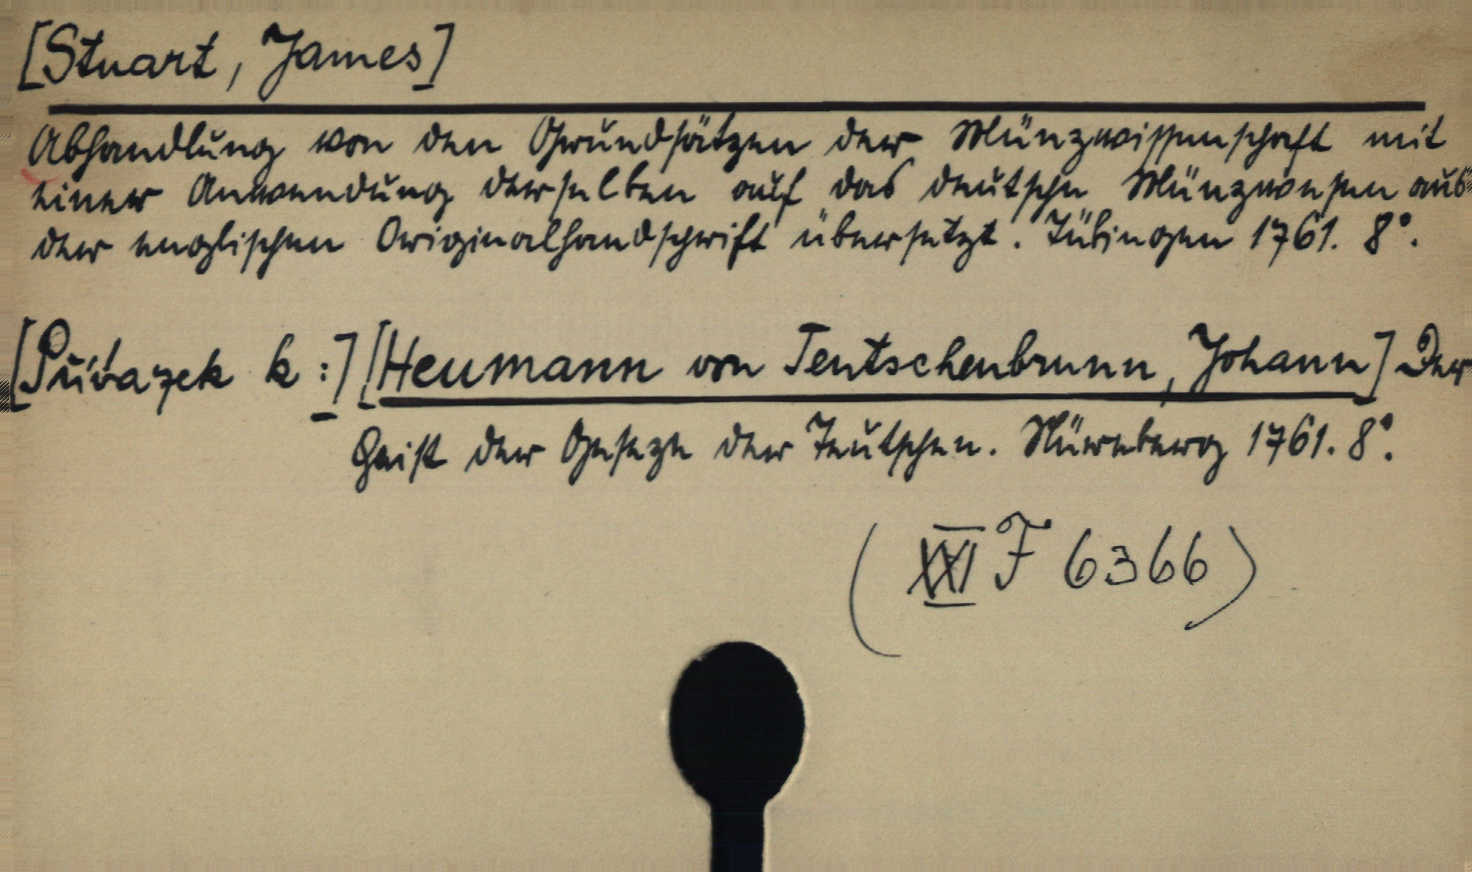 [Stuart, James]
Abhandlung von den Grundsätzen der Münzwissenschaft mit
einer Anwendung derselben auf das deutsche Münzwesen aus
der englischen Originalhandschrift übersetzt. Tübingen 1761. 8°.
[Přívazek k:] [Heumann von Teutschenbrunn, Johann] Der
Geist der Gesetze der Teutschen. Nürnberg 1761. 8°.
(XXI F 6366)